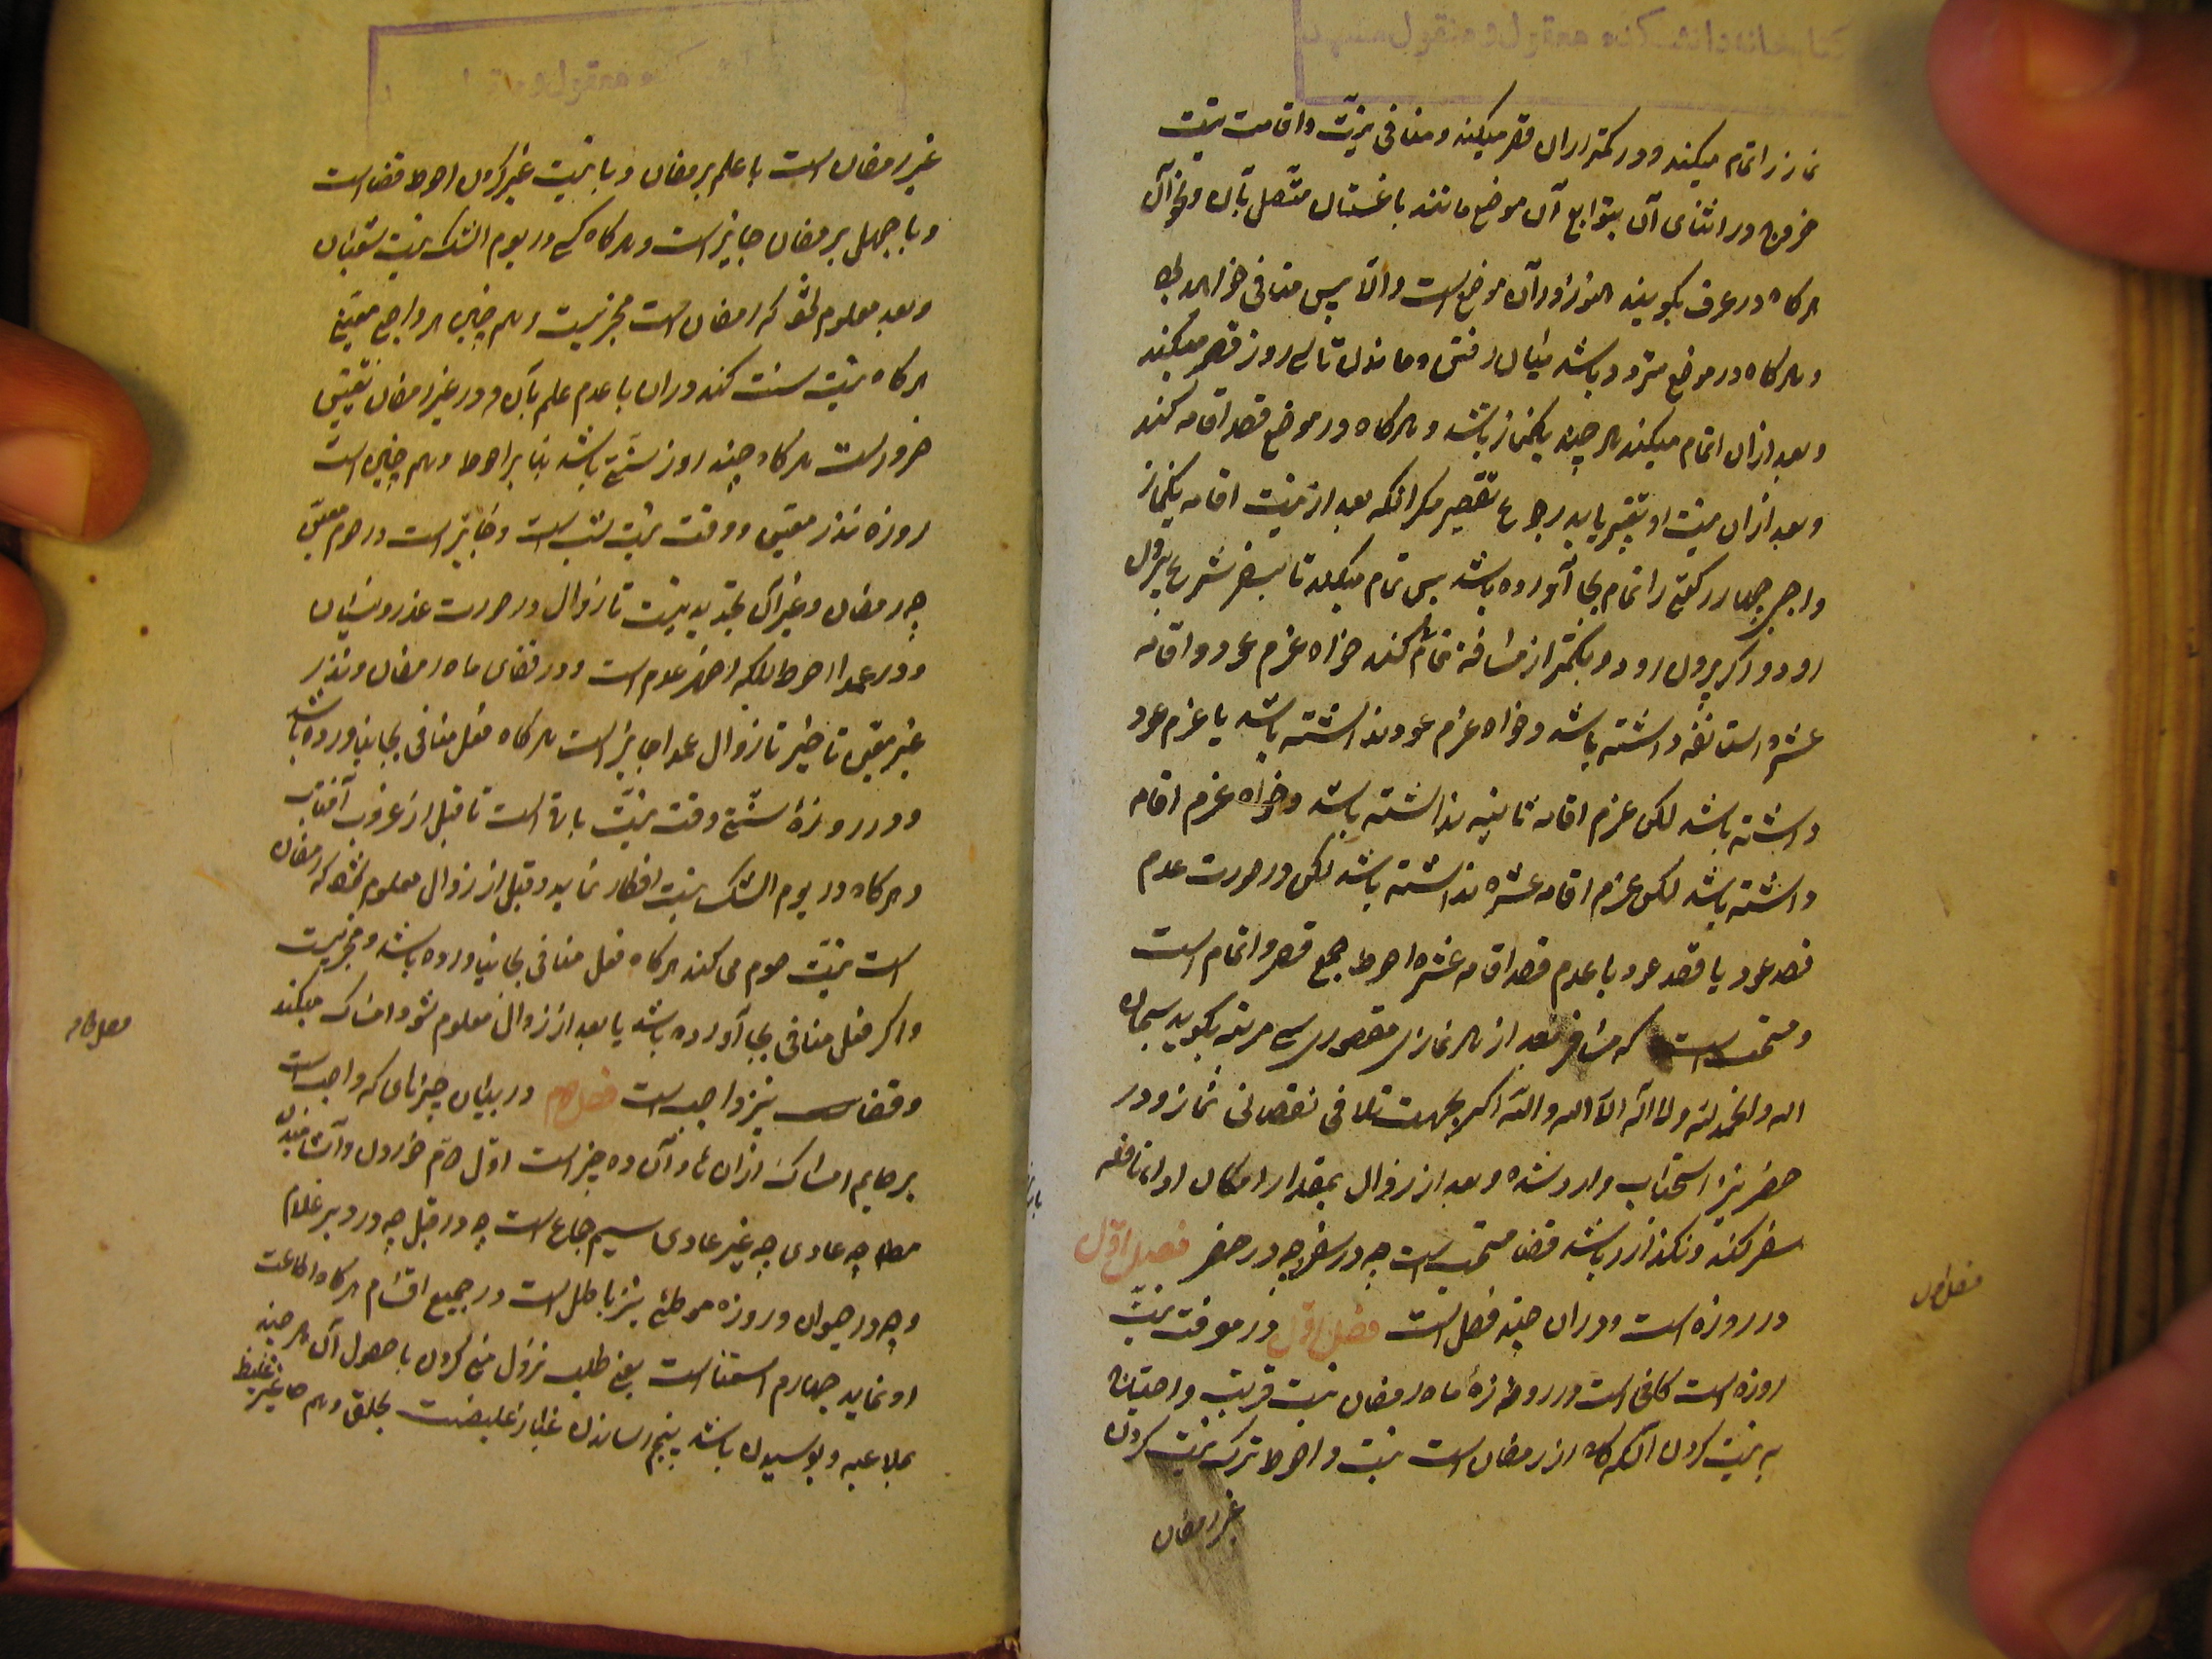 نماز را تمام میکند و در کمتر از ان قصر میکند و منافی نیّت و اقامت نیست
خروج در اثنای آن بتوابع آن موضع مانند باغستان متّصل بآن و نحو آن
هرگاه در عرف بگویند هنوز در آن موضع است والّا پس منافی خواهد بود
و هرگاه در موضع متردد باشد میان رفتن و ماندن تا سی روز قصر میکند
و بعد از ان اتمام میکند هر چند یکنماز باشد و هرگاه در موضع قصد اقامه کند
و بعد از ان نیت او تغییر یابد رجوع بتقصیر مکر انکه بعد از نیت اقامه یکنماز
واجب چهار رکعتی را تمام بجا آورده باشد پس تمام میکند تا بسفر شرعی بیرون
رود و اکر بیرون رود و بکمتر از مسافة تمام کند خواه عزم عود و اقامه
عشره استانفه داشته باشد و خواه عزم عود نداشته باشد یا عزم عود
داشته باشد لکن عزم اقامه ثانیه نداشته باشد و خواه عزم اقامه
داشته باشد لکن عزم اقامه عشره نداشته باشد لکن در صورت عدم
قصد عود یا قصد عود با عدم قصد اقامه عشره احوط جمع قصر و اتمام است
و مستحب است که مسافر بعد از هر نمازی مقصوره سی مرتبه بکوید سبحان
الله و الحمد لله و لا اله الّا الله و الله اکبر بجهت تلافی نقصانی نماز و در
حضر نیز استحباب وارد شده و بعد از زوال بمقدار امکان ادا نافله
سفر کند و نکذارد باشد قضا مستحب است چه در سفر چه در حضر فصل اوّل
در روزه است و در ان چند فصل است فصل اول در معرفت نیّت
روزه است کافی است در روزهٔ ماه رمضان نیت قربت و احتیاج
به نیت کردن آنکه از رمضان است نیست و احوط ترک نیت کردن
غیر رمضان
فصل اول
غیر رمضان است با علم برمضان و با نیت غیر کردن احوط قضا است
و با جهل برمضان جایز است و هرگاه کسی در یوم الشک نیت شعبان
و بعد معلوم شود که رمضان است مجزیست و هم چنین هر واجب معیّنی
هرگاه نیت سنت کند در ان با عدم علم بآن و در غیر رمضان تعیین
ضرور است هرگاه چند روز سنّتی باشد بنا بر احوط و هم چنین است
روزه نذر معین و وقت نیت شب است و جایز است در صوم معیّن
چه رمضان و غیر آن تجدید نیت تا زوال در صورت عذر و نسیان
و در عمدا احوط بلکه اظهر عدم است و در قضای ماه رمضان و نذر
غیر معین تاخیر تا زوال عمدا جایز است هرگاه فعل منافی بجا نیاورده باشد
و در روزهٔ سنّتی وقت نیّت باقی است تا قبل از غروب آفتاب
و هرگاه در یوم الشک نیت افطار نماید و قبل از زوال معلوم شود که رمضان
است نیّت صوم می کند هرگاه فعل منافی بجا نیاورده باشد و مجزیست
و اکر فعل منافی بجا آورده باشد یا بعد از زوال معلوم شود امساک میکند
و قضا نیز واجب است فصل دوم در بیان چیزهای که واجب است
بر صایم امساک از ان ها و آن ده چیز است اوّل دوّم خوردن و آشامیدن
مطلقا چه عادی چه غیر عادی سیم جماع است چه در قبل چه در دبر غلام
و چه در حیوان و روزه موطئ نیز باطل است در جمیع اقسام هرگاه اطاعت
او نماید چهارم استمنا است یعنی طلب نزول منی کردن با حصول آن هر چند
بملاعبه و بوسیدن باشد پنجم رساندن غبار غلیظست بحلق و هم چنین غیر غلیظ
فصل دوم